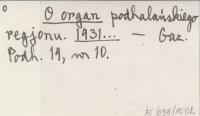 O organ podhalańskiego
regjonu. 1931... — Gaz.
Podh. 19, nr 10.